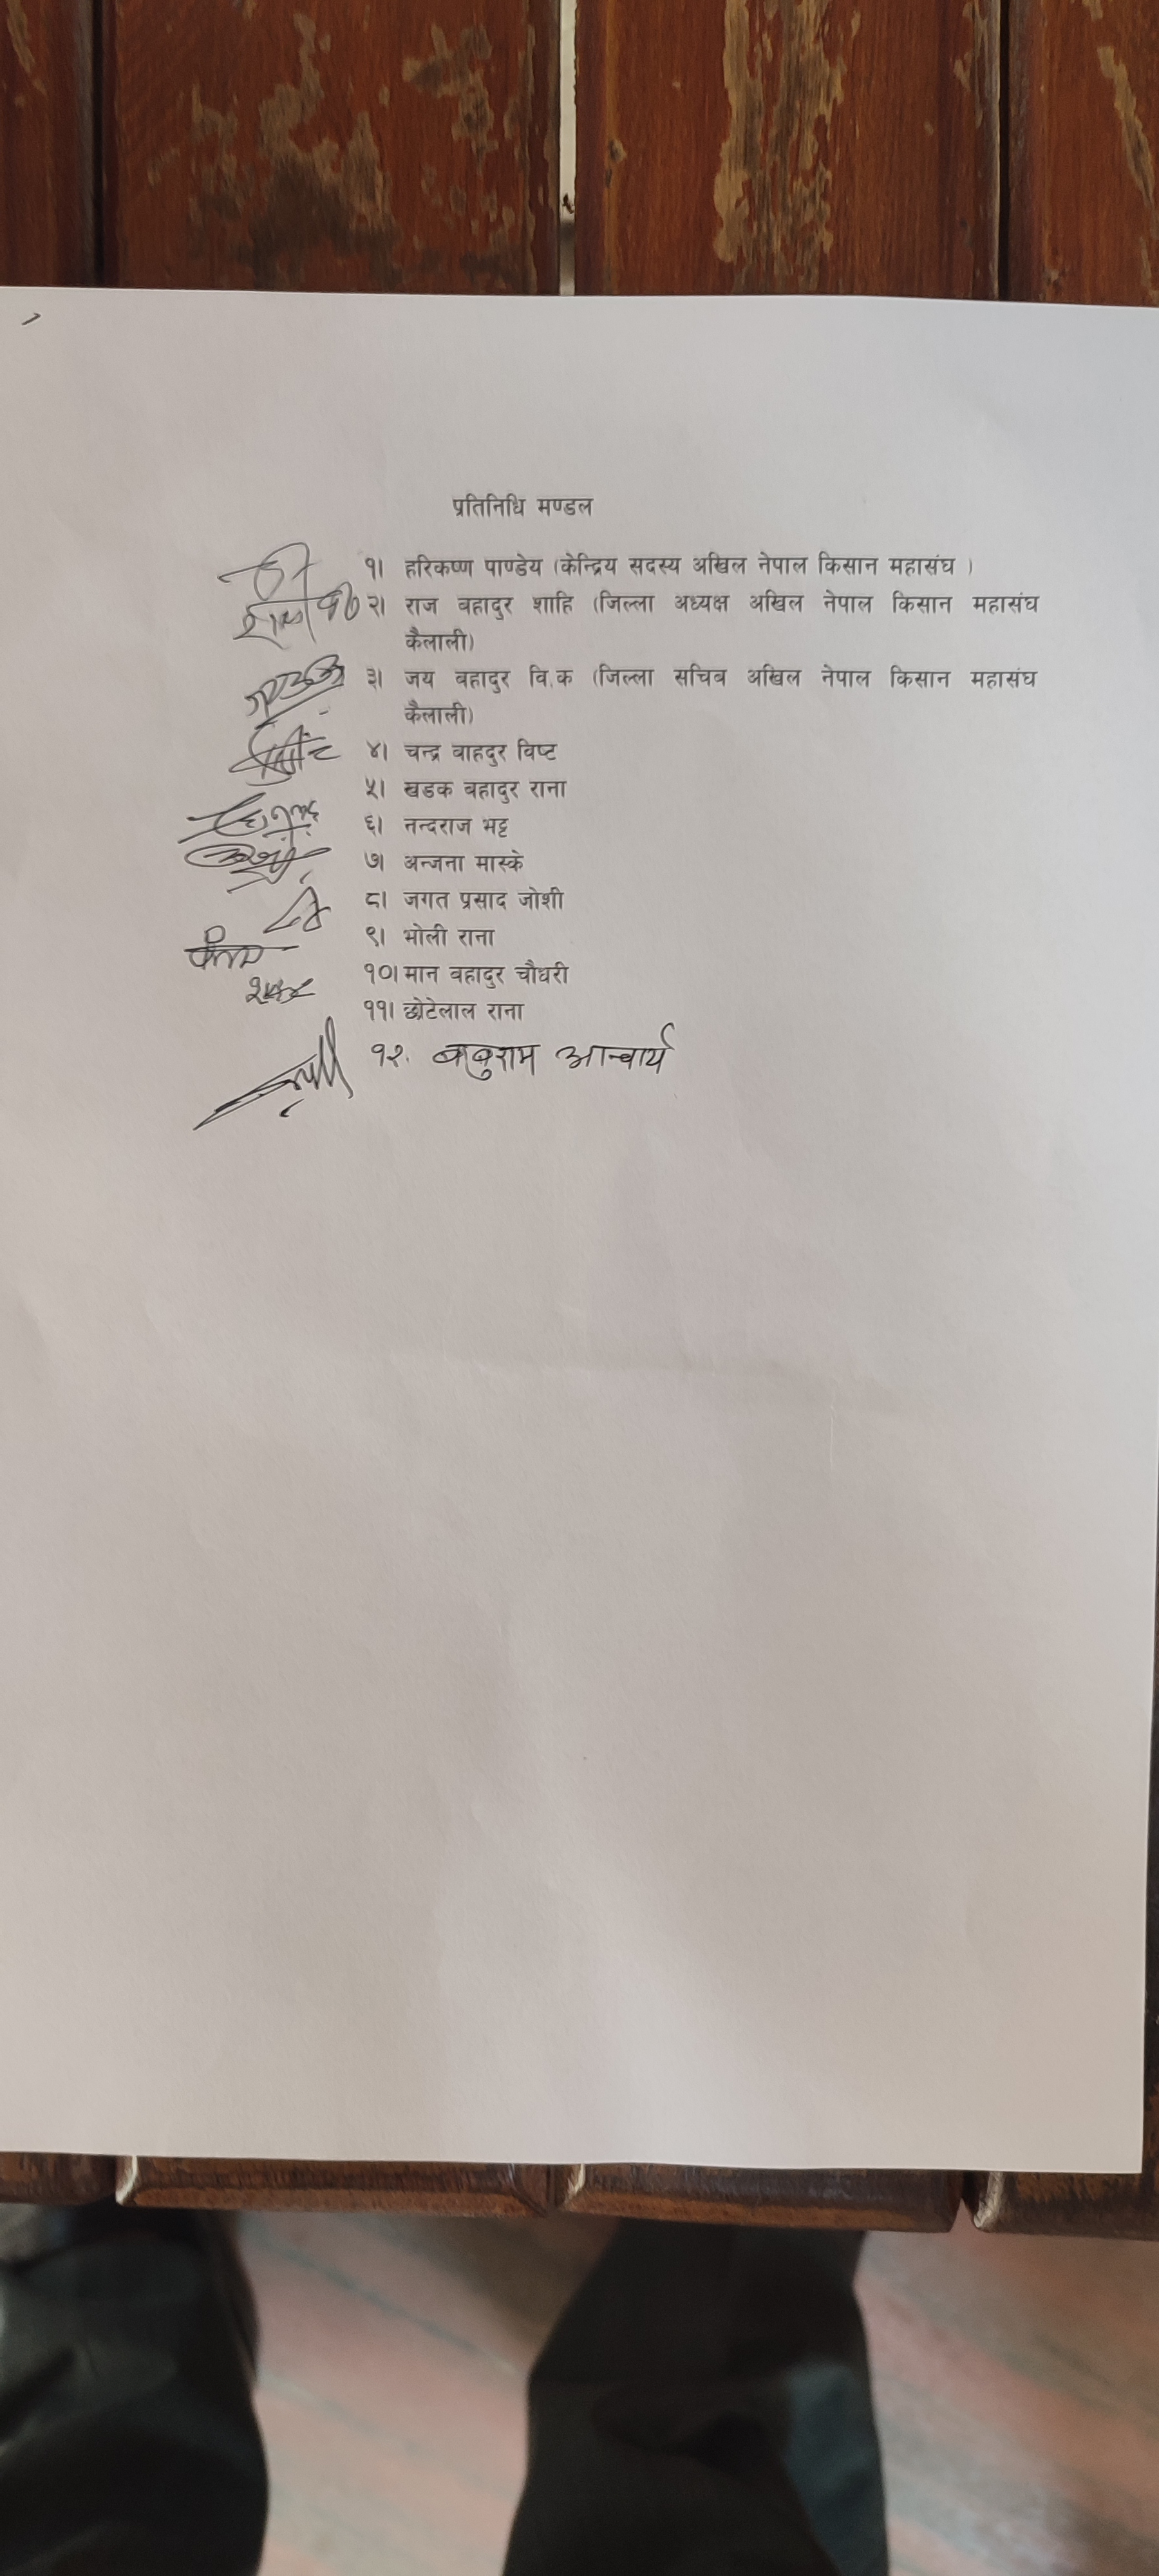 प्रतिनिधि मण्डल
१। हरिकष्ण पाण्डेय (केन्द्रिय सदस्य अखिल नेपाल किसान महासंघ )
२। राज बहादुर शाहि (जिल्ला अध्यक्ष अखिल नेपाल किसान महासंघ
कैलाली)
३। जय बहादुर वि.क (जिल्ला सचिब अखिल नेपाल किसान महासंघ
कैलाली)
४। चन्द्र बाहदुर विष्ट
५। खडक बहादुर राना
६। नन्दराज भट्ट
७। अन्जना मास्के
८। जगत प्रसाद जोशी
९। भोली राना
१०। मान बहादुर चौधरी
११। छोटेलाल राना
१२. बाबुराम आचार्य